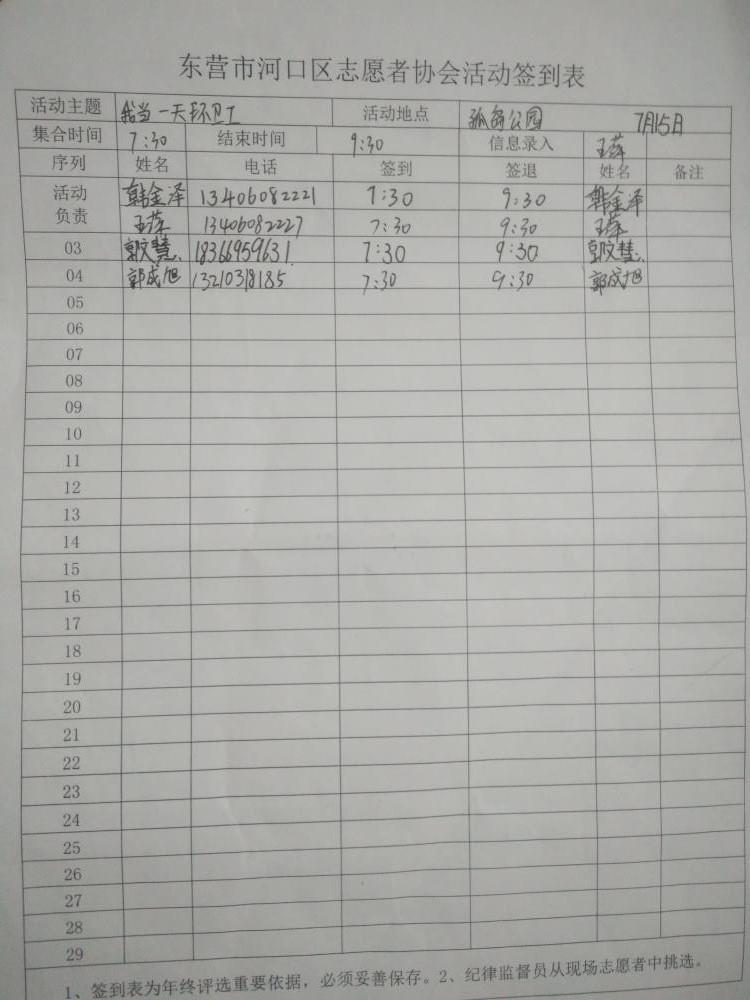 东营市河口区志愿者协会活动签到表
活动主题 我当一天环卫工 活动地点 孤岛公园 7月15日
集合时间 7:30 结束时间 9:30 信息录入 王萍
序列 姓名 电话 签到 签退 姓名 备注
活动负责 韩金泽 13406082221 7:30 9:30 韩金泽
王萍 13406082227 7:30 9:30 王萍
03 郭文慧 18366959631 7:30 9:30 郭文慧
04 郭成旭 13210318185 7:30 9:30 郭成旭
05
06
07
08
09
10
11
12
13
14
15
16
17
18
19
20
21
22
23
24
25
26
27
28
29
1、签到表为年终评选重要依据，必须妥善保存。2、纪律监督员从现场志愿者中挑选。